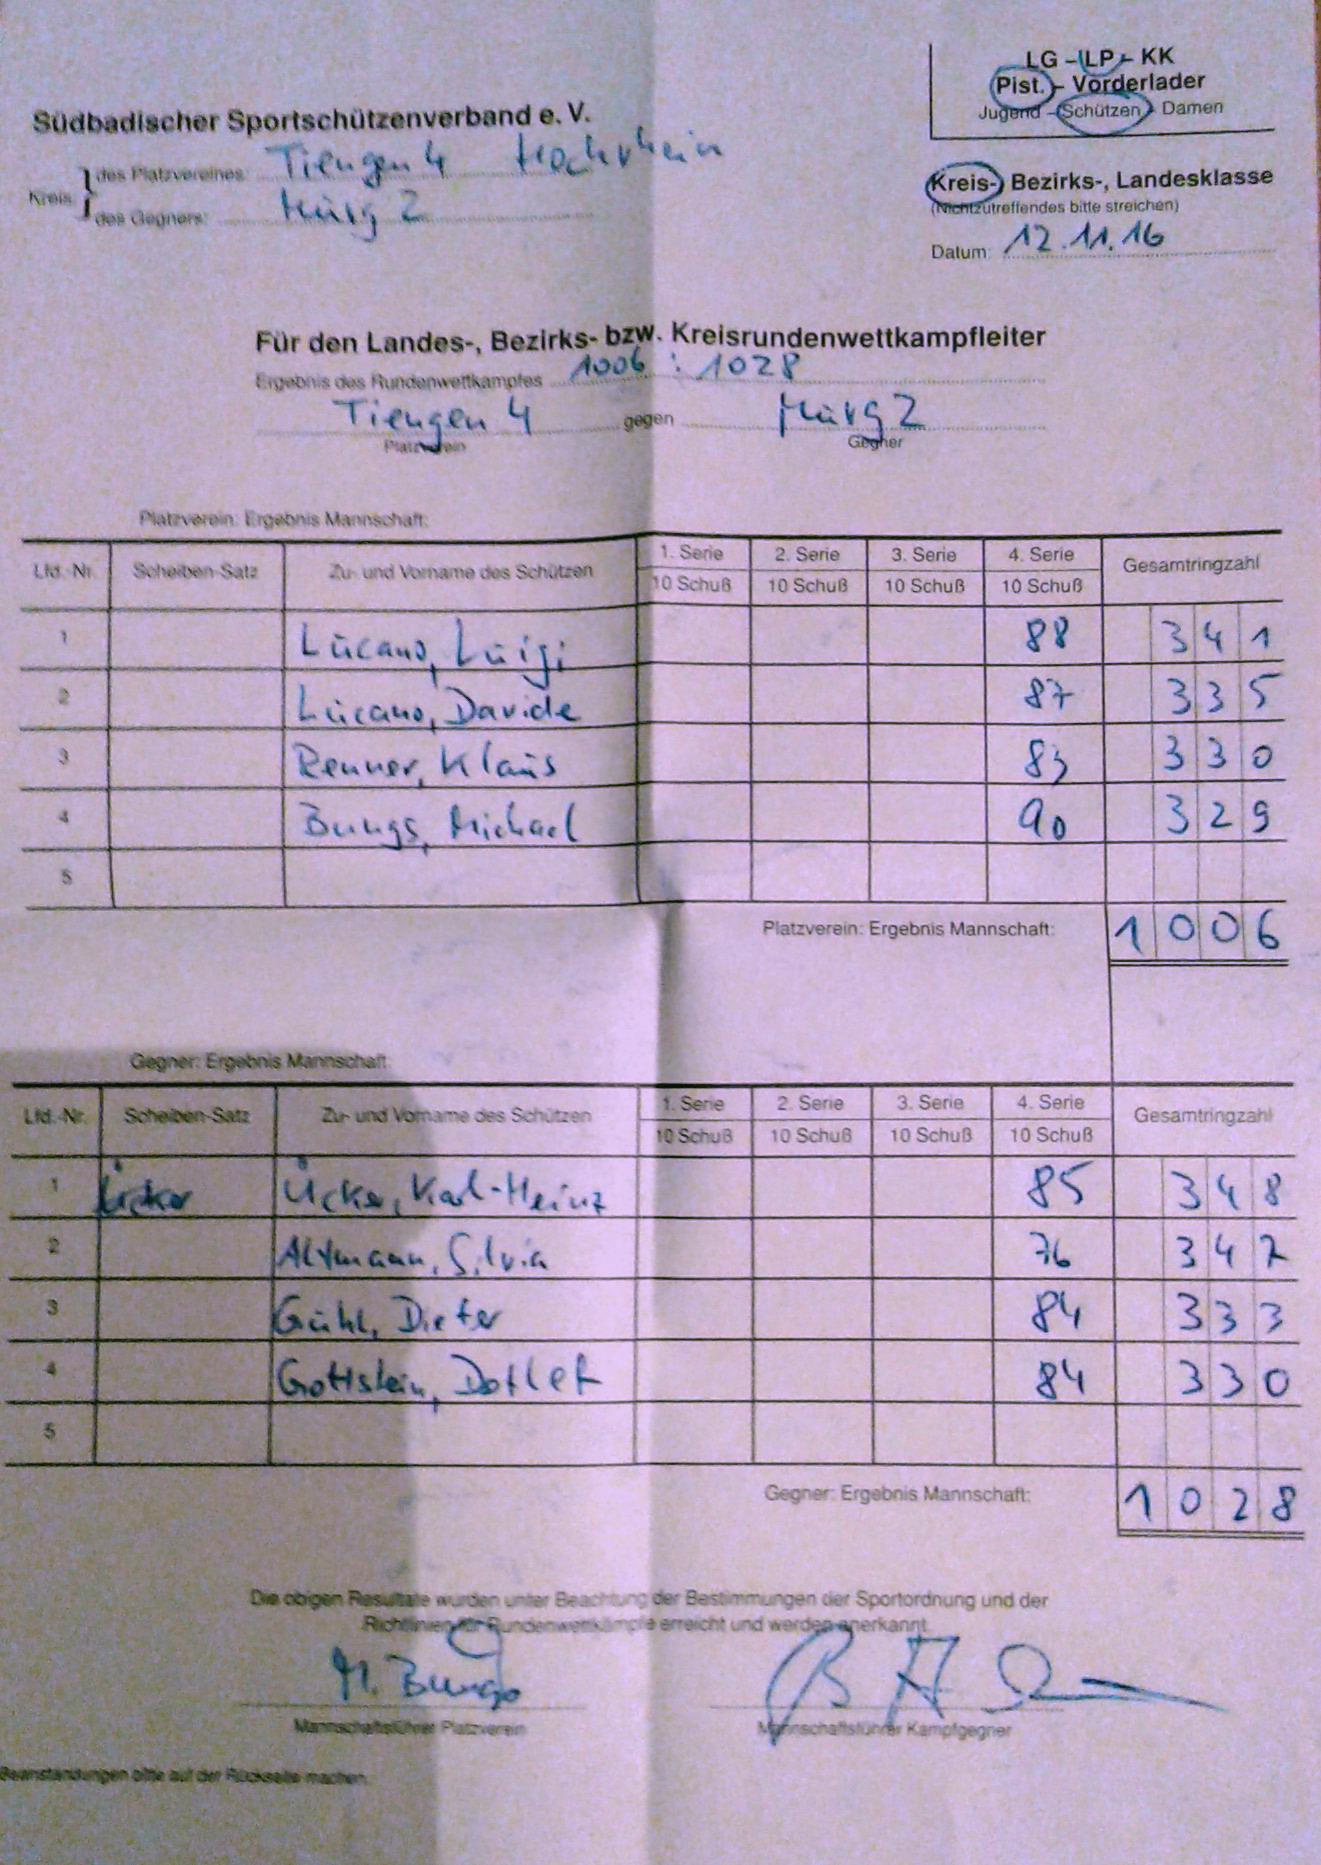 LG - LP - KK
Pist. - Vorderlader
Jugend - Schützen - Damen
Südbadischer Sportschützenverband e. V.
Kreis
des Platzvereines: Tiengen 4 Hochrhein
des Gegners: Murg 2
Kreis-, Bezirks-, Landesklasse
(Nichtzutreffendes bitte streichen)
Datum: 12.11.16
Für den Landes-, Bezirks- bzw. Kreisrundenwettkampfleiter
Ergebnis des Rundenwettkampfes 1006 : 1028
Tiengen 4 gegen Murg 2
Platzverein Gegner
Platzverein: Ergebnis Mannschaft:
Lfd.-Nr. Scheiben-Satz Zu- und Vorname des Schützen 1. Serie 2. Serie 3. Serie 4. Serie Gesamtringzahl
10 Schuß 10 Schuß 10 Schuß 10 Schuß
1 Lucano, Luigi 88 341
2 Lucano, Davide 87 335
3 Renner, Klaus 83 330
4 Bungs, Michael 90 329
5
Platzverein: Ergebnis Mannschaft: 1006
Gegner: Ergebnis Mannschaft:
Lfd.-Nr. Scheiben-Satz Zu- und Vorname des Schützen 1. Serie 2. Serie 3. Serie 4. Serie Gesamtringzahl
10 Schuß 10 Schuß 10 Schuß 10 Schuß
1 Ücker Ücker, Karl-Heinz 85 348
2 Altmann, Silvia 76 347
3 Gühl, Dieter 84 333
4 Gottstein, Detlef 84 330
5
Gegner: Ergebnis Mannschaft: 1028
Die obigen Resultate wurden unter Beachtung der Bestimmungen der Sportordnung und der
Richtlinien für Rundenwettkämpfe erreicht und werden anerkannt.
M. Bungs
Mannschaftsführer Platzverein Mannschaftsführer Kampfgegner
Beanstandungen bitte auf der Rückseite machen.